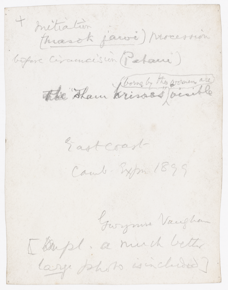 + Initiation
(masok jawi) procession
before circumcision (Patani)
the
krisses visible
East Coast
Camb. Expn. 1899
Gwynne Vaughan
[Dupl. a much better
large photo enclosed]